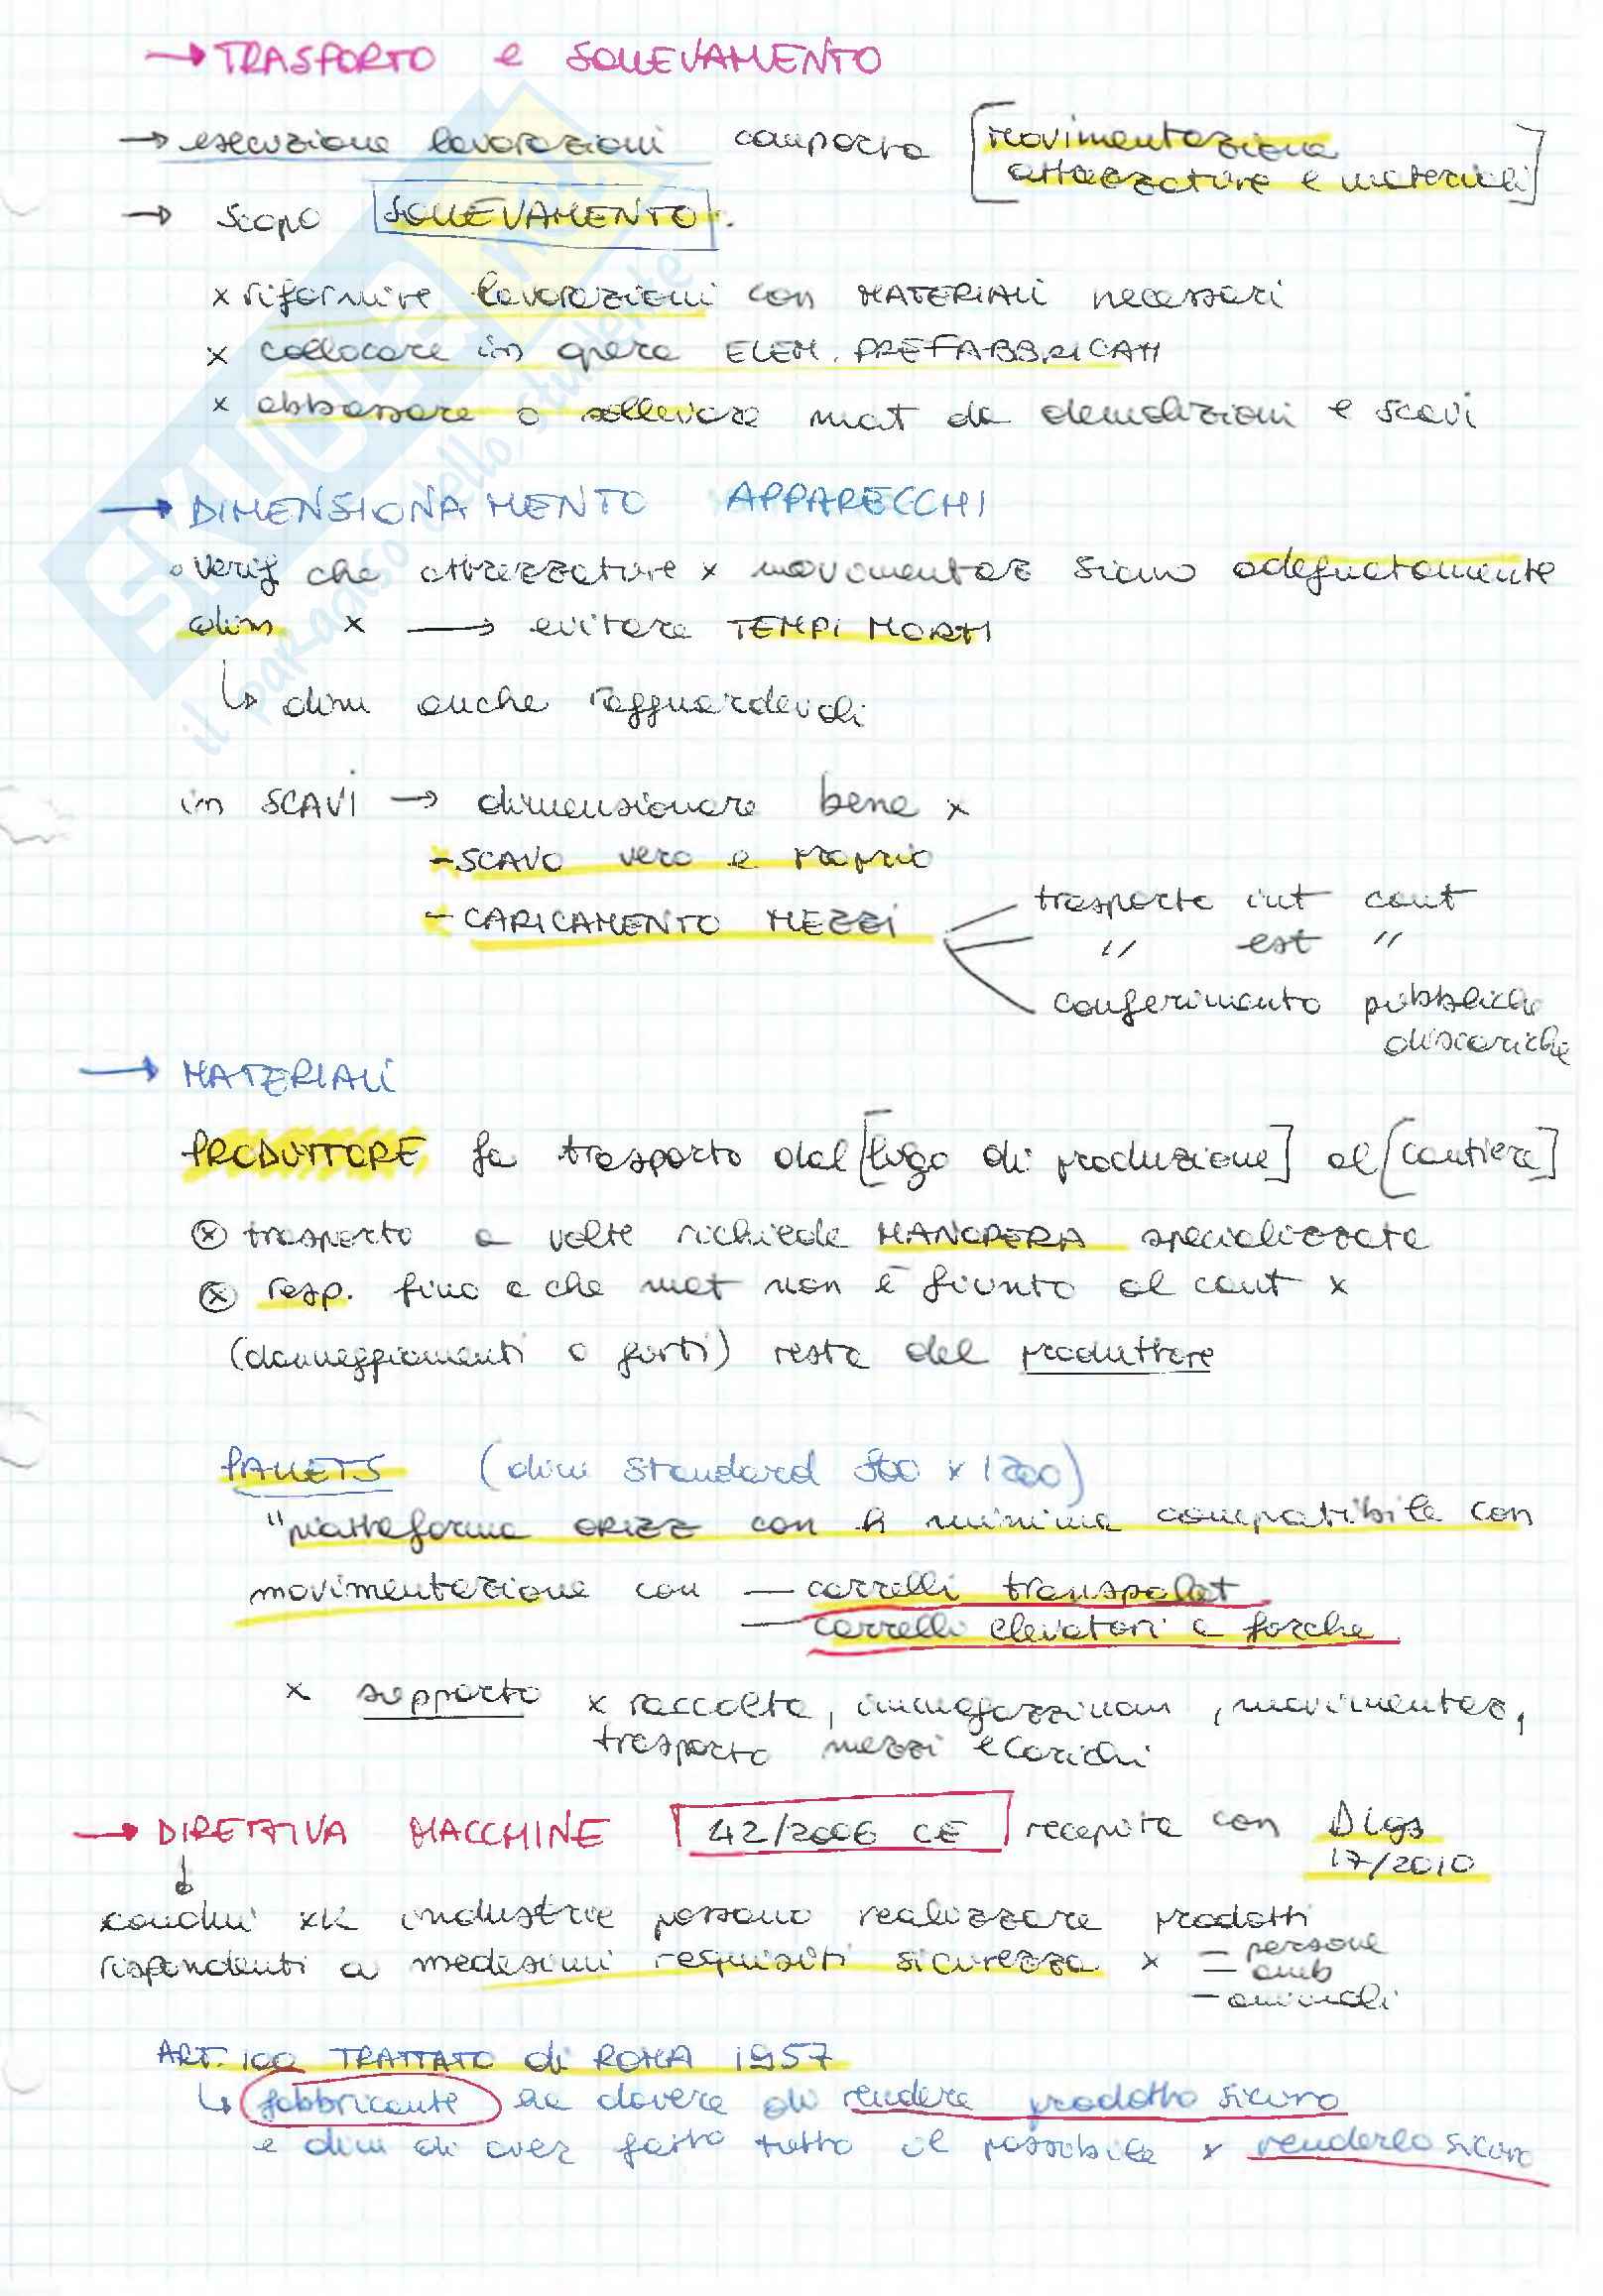 → TRASPORTO e SOLLEVAMENTO
→ esecuzione lavorazioni comporta [movimentazione
attrezzature e materiali]
→ Scopo SOLLEVAMENTO.
x rifornire lavorazioni con MATERIALI necessari
x collocare in opera ELEM. PREFABBRICATI
x abbassare o sollevare mat da demolizioni e scavi
→ DIMENSIONAMENTO APPARECCHI
• Verif che attrezzature x movimentaz siano adeguatamente
dim x → evitare TEMPI MORTI
↳ dim anche ragguardevoli
in SCAVI → dimensionare bene x
- SCAVO vero e proprio
- CARICAMENTO MEZZI
trasporto int cant
" est "
conferimento pubbliche
discariche
→ MATERIALI
PRODUTTORE fa trasporto dal [luogo di produzione] al [cantiere]
⊗ trasporto a volte richiede MANOPERA specializzata
⊗ resp. fino a che mat non è giunto al cant x
(danneggiamenti o furti) resta del produttore
PALLETS (dim standard 800 x 1200)
"piattaforma ORIZZ con h minima compatibile con
movimentazione con — carrelli transpalet
— carrelli elevatori a forche
x supporto x raccolta, immagazzinam, movimentaz,
trasporto mezzi e carichi
→ DIRETTIVA MACCHINE 42/2006 CE recepita con Dlgs
17/2010
↓
condui xk industrie possano realizzare prodotti
rispondenti a medesimi requisiti sicurezza x — persone
— amb
— animali
ART. 100 TRATTATO di ROMA 1957
↳ fabbricante ha dovere di rendere prodotto sicuro
e dim di aver fatto tutto il possibile x renderlo sicuro
SKUOLA.net
il paradiso dello studente